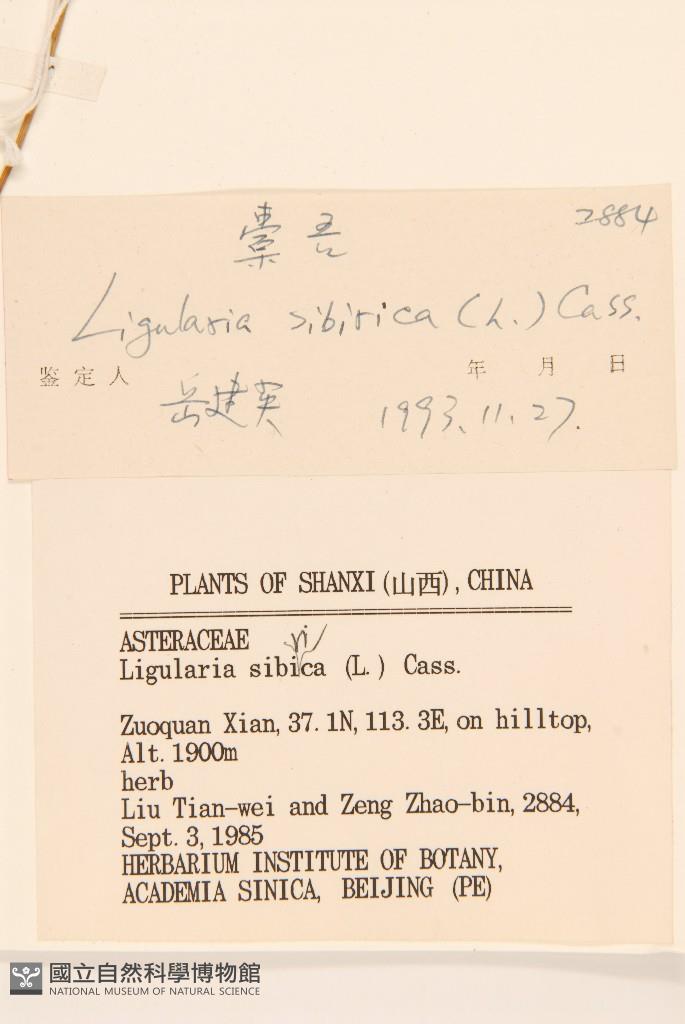 2884
橐吾
Ligularia sibirica (L.) Cass.
鉴定人 年 月 日
岳建英 1993.11.27.
PLANTS OF SHANXI (山西), CHINA
ASTERACEAE
ri
Ligularia sibica (L.) Cass.
Zuoquan Xian, 37.1N, 113.3E, on hilltop,
Alt. 1900m
herb
Liu Tian-wei and Zeng Zhao-bin, 2884,
Sept. 3, 1985
HERBARIUM INSTITUTE OF BOTANY,
ACADEMIA SINICA, BEIJING (PE)
國立自然科學博物館
NATIONAL MUSEUM OF NATURAL SCIENCE